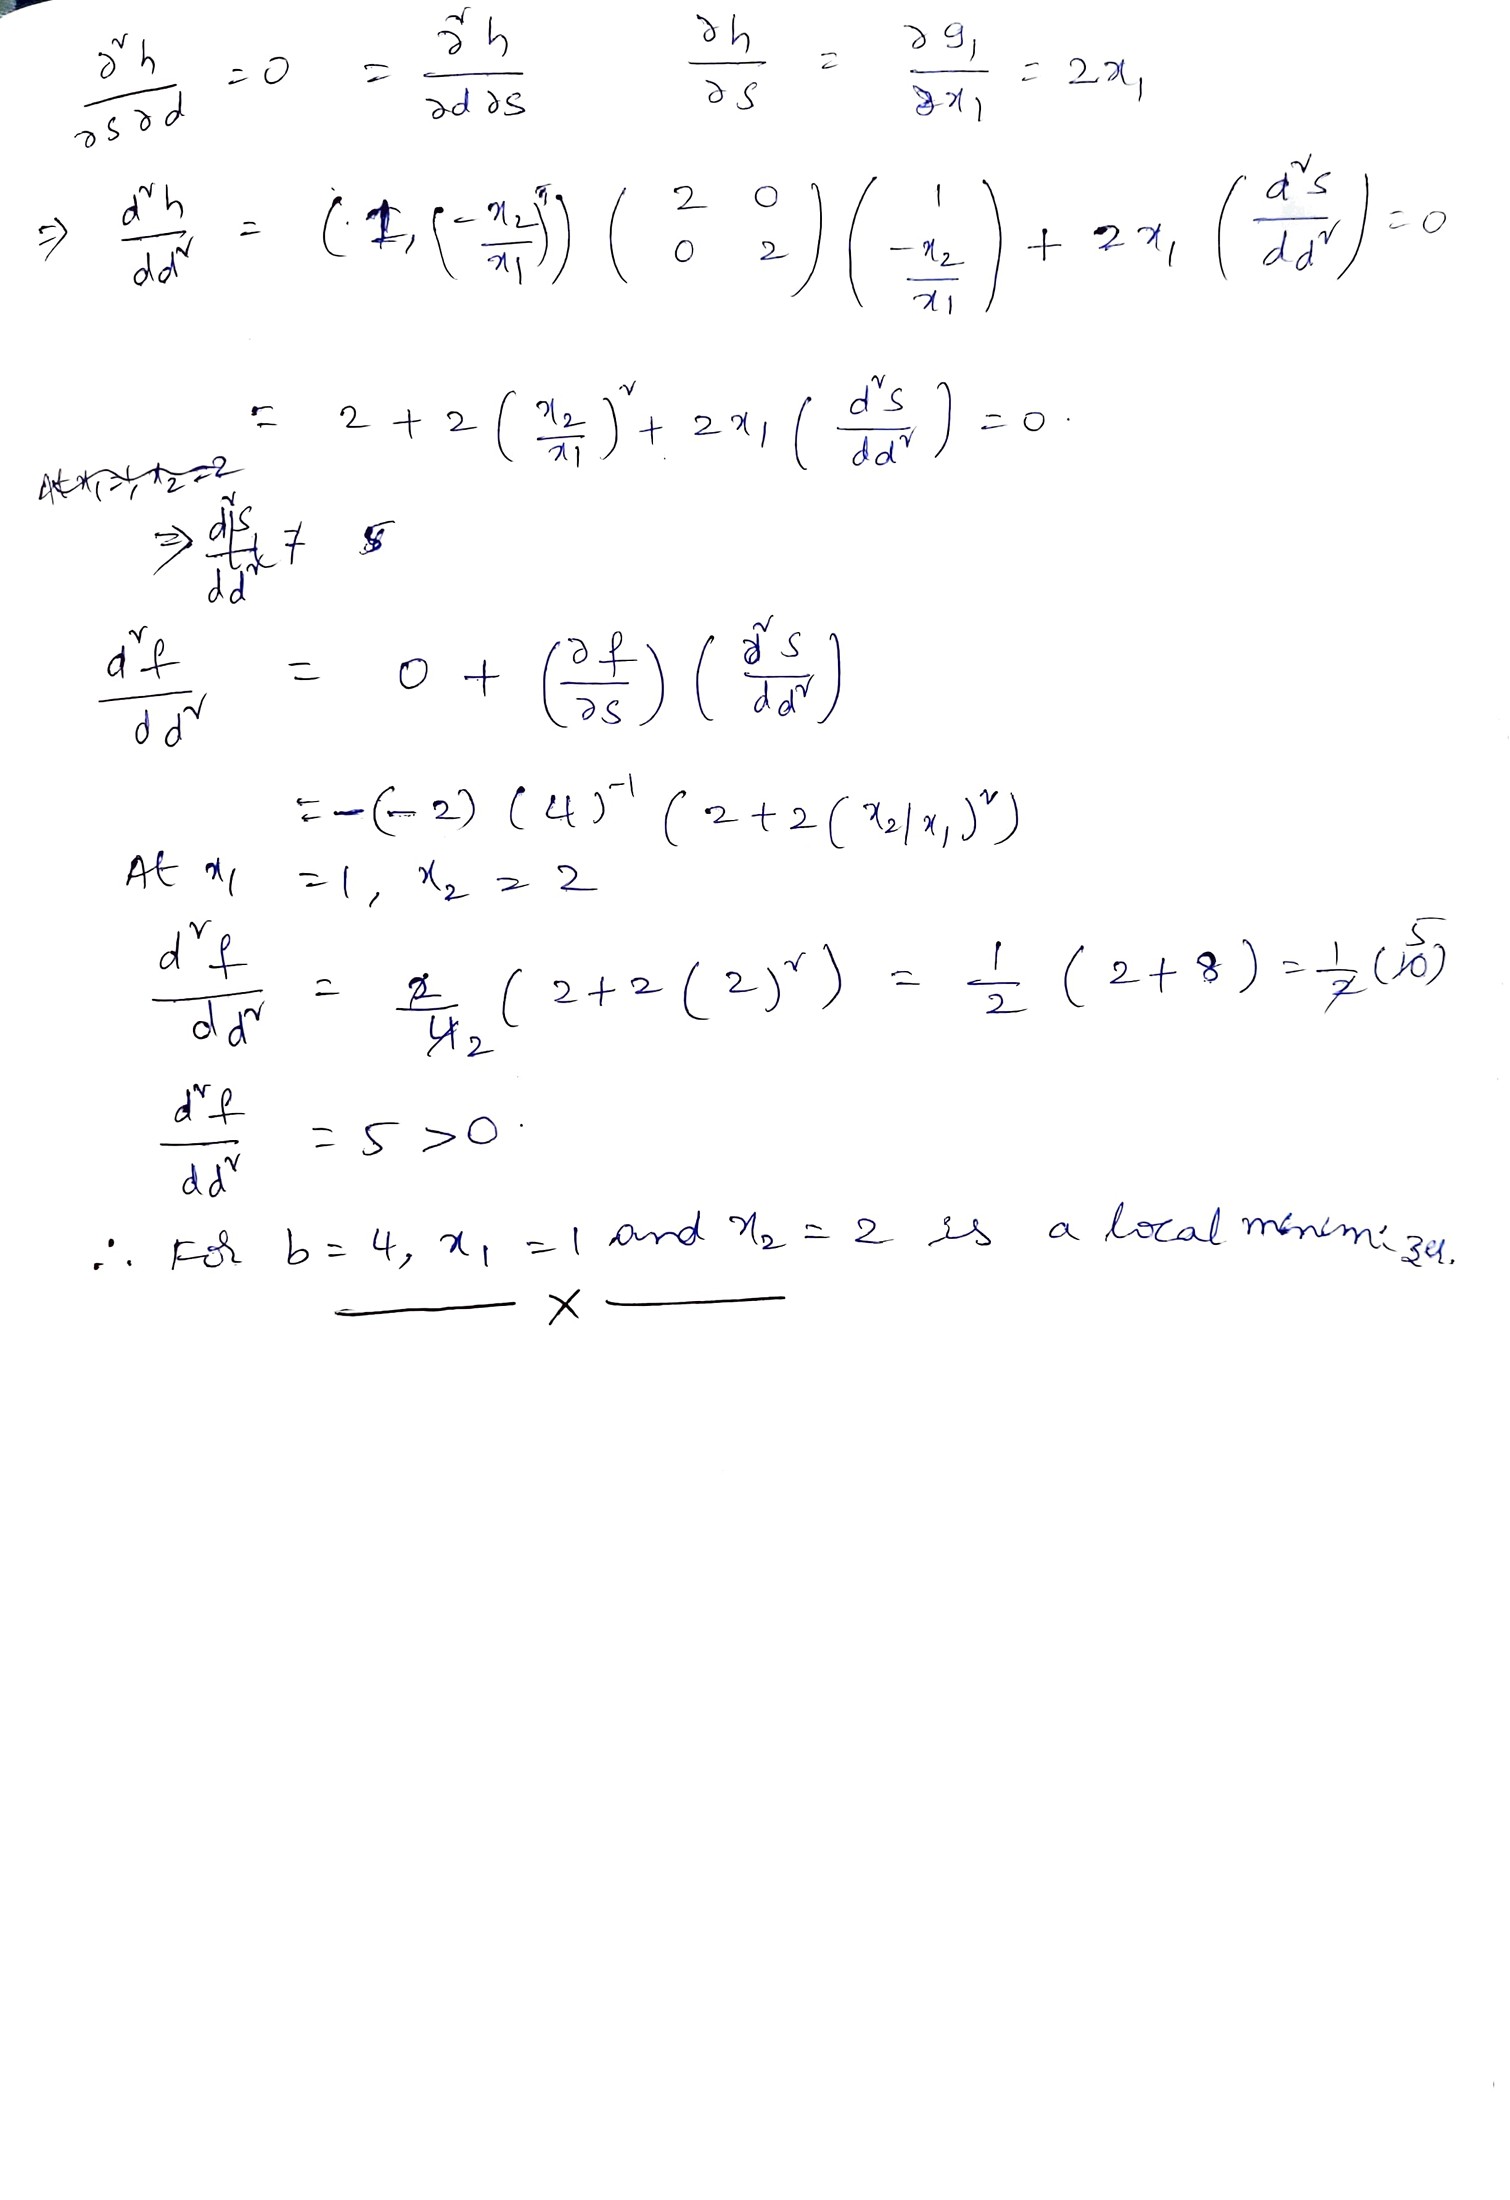 ∂²h/∂s∂d = 0 = ∂²h/∂d∂s    ∂h/∂s = ∂g₁/∂x₁ = 2x₁
⇒ d²h/dd² = (1, (-x₂/x₁)ᵀ) (2 0; 0 2) (1; -x₂/x₁) + 2x₁ (d²s/dd²) = 0
= 2 + 2 (x₂/x₁)² + 2x₁ (d²s/dd²) = 0.
At x₁=1, x₂=2
⇒ d²s/dd²
d²f/dd² = 0 + (∂f/∂s) (∂²s/dd²)
= -(-2) (4)⁻¹ (2+2(x₂/x₁)²)
At x₁ = 1, x₂ = 2
d²f/dd² = 2/4 2 (2+2(2)²) = 1/2 (2+8) = 1/2 (10) 5
d²f/dd² = 5 > 0.
∴ For b = 4, x₁ = 1 and x₂ = 2 is a local minimizer.
—— x ——